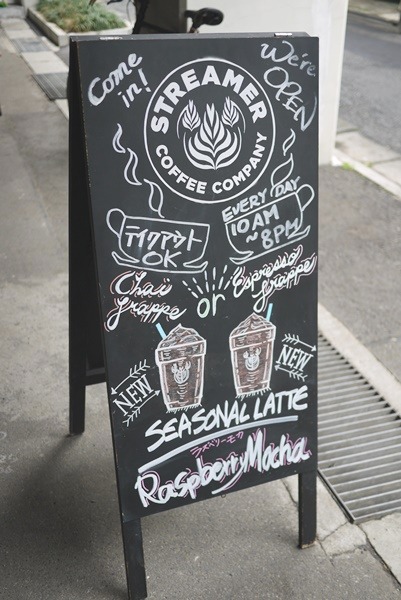 Come in!
We're OPEN
STREAMER
COFFEE COMPANY
テイクアウト
OK
EVERY DAY
10AM
~8PM
Chai
frappe
or
Espresso
frappe
NEW
NEW
SEASONAL LATTE
ラズベリーモカ
Raspberry Mocha